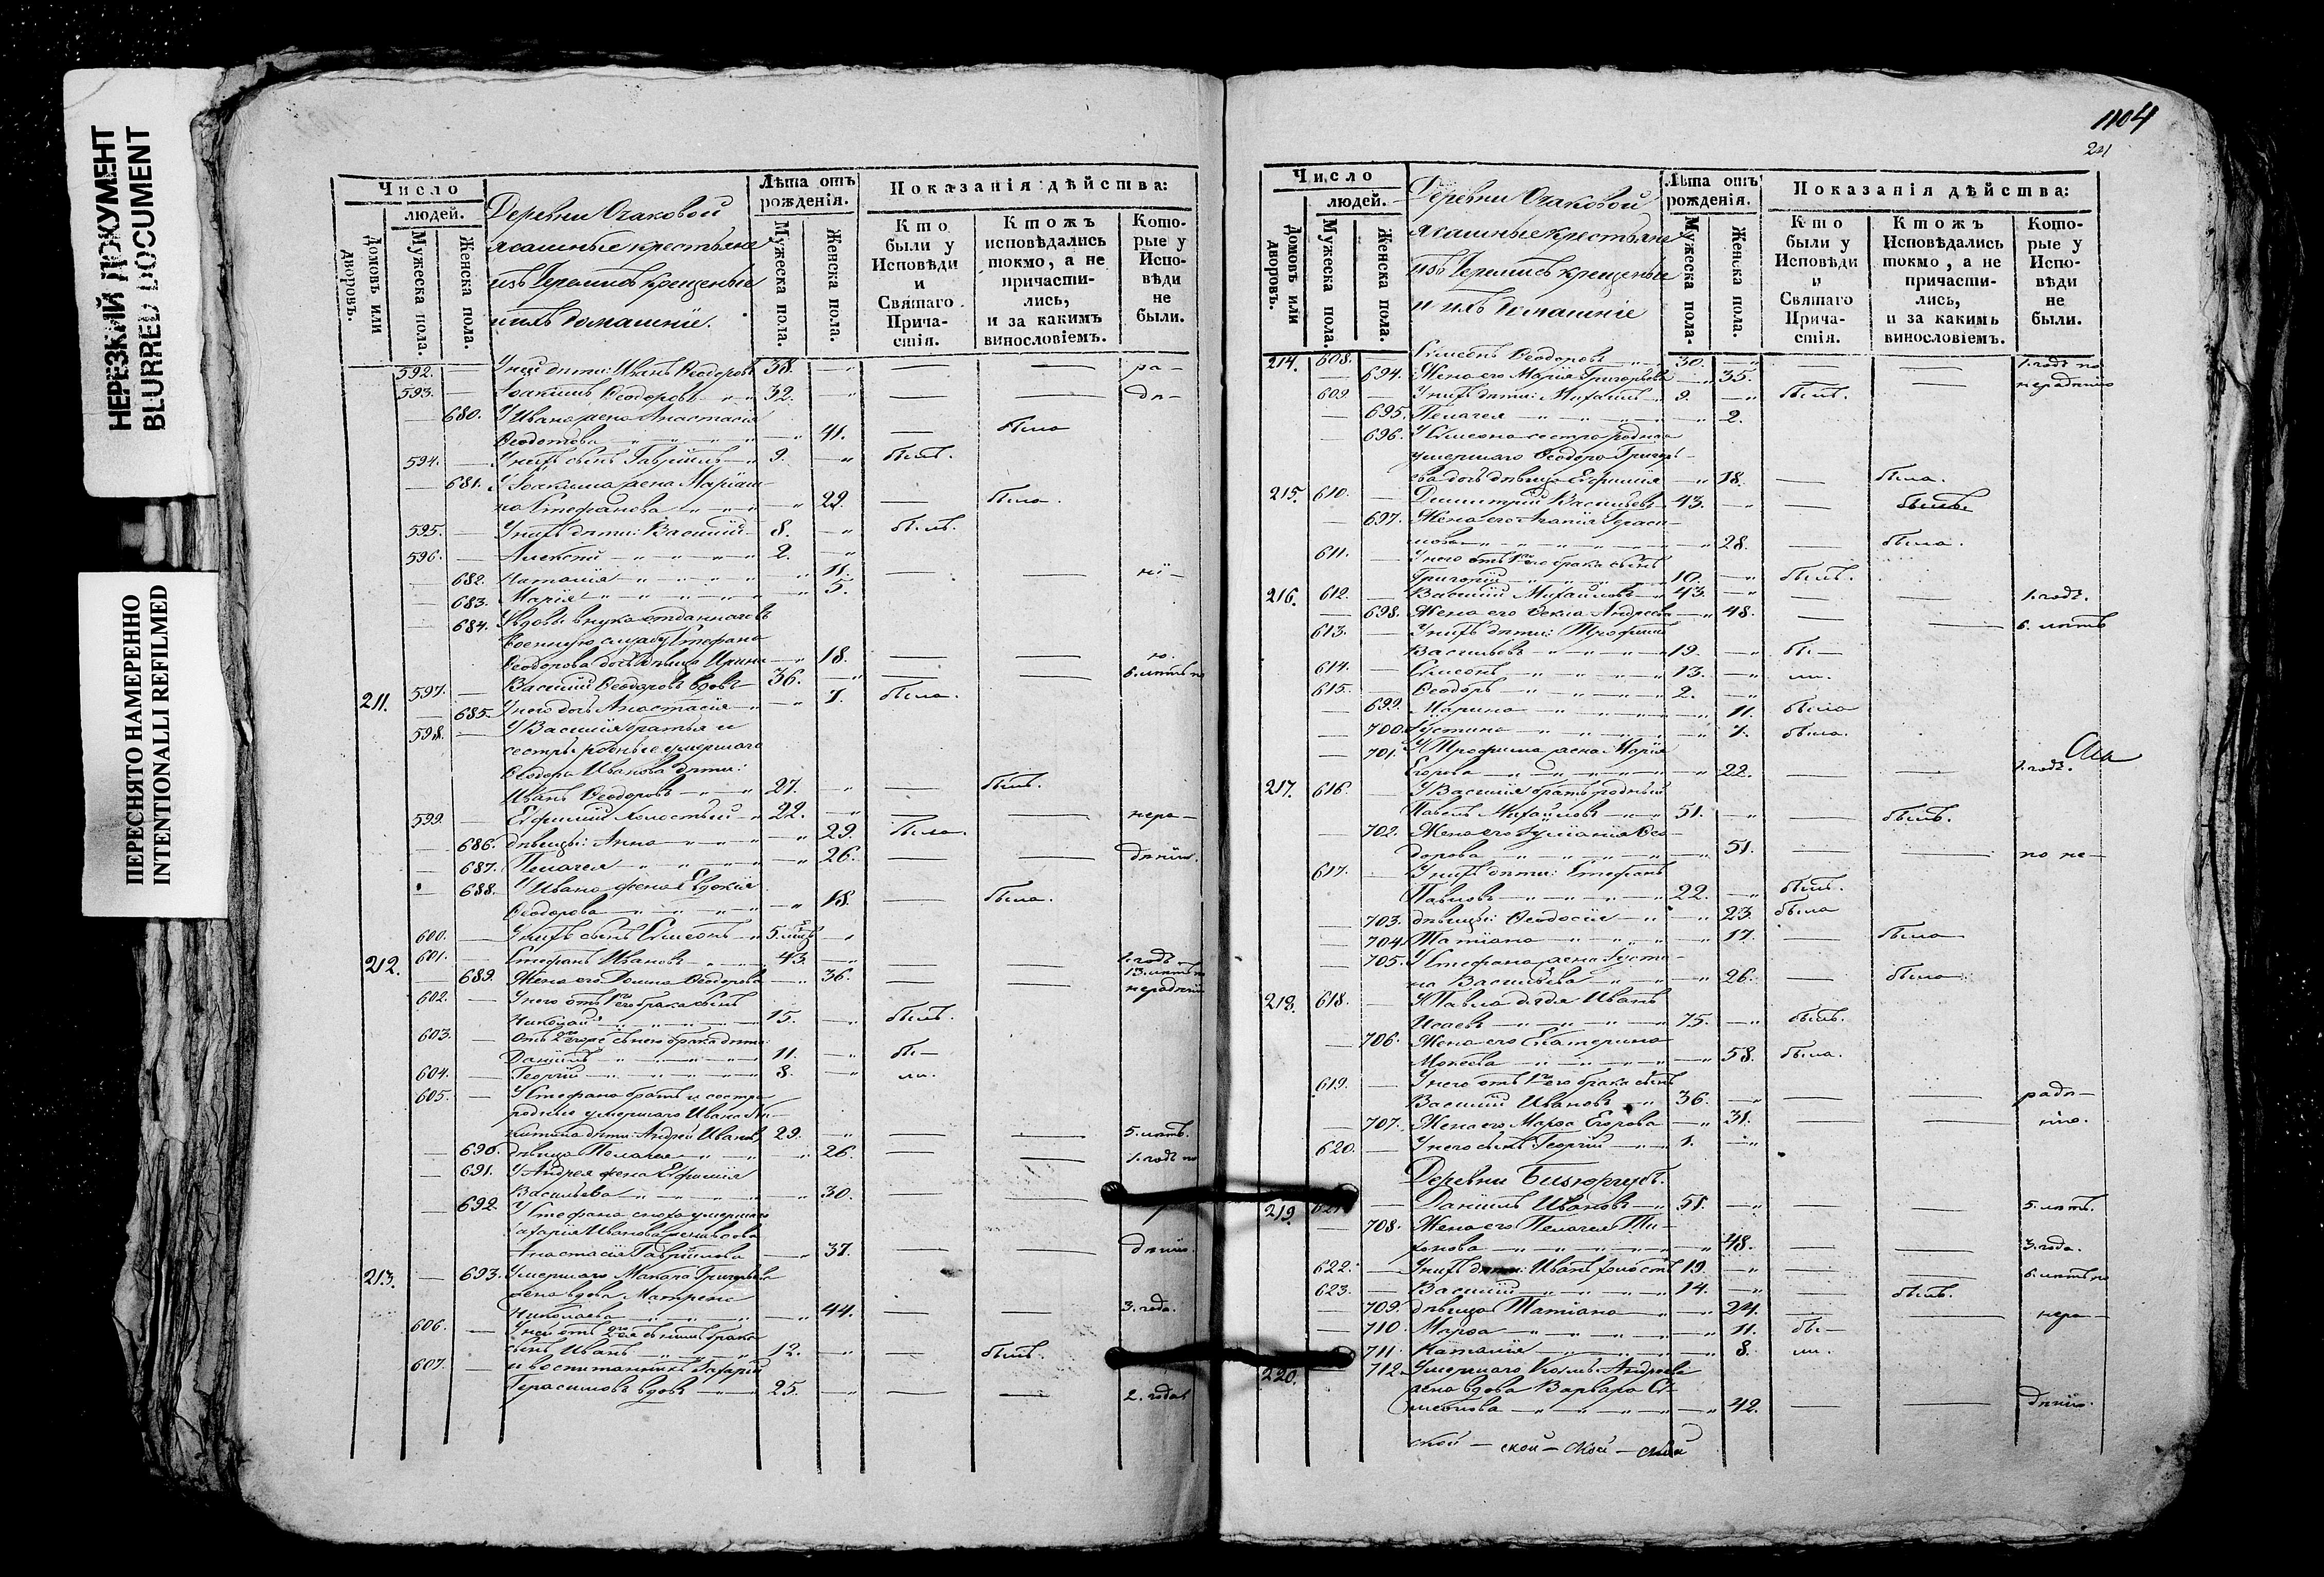 НЕРЕЗКИЙ ДОКУМЕНТ
BLURRED DOCUMENT
ПЕРЕСНЯТО НАМЕРЕННО
INTENTIONALLI REFILMED
Число
людей.
Домовъ или дворовъ.
Мужеска пола.
Женска пола.
Деревни Очаковой
ясашные крестьяне
изъ крещеные
и ихъ домашніе.
Лѣта отъ рожденія.
Мужеска пола.
Женска пола.
Показанія дѣйства:
Кто были у Исповѣди и Святаго Причастія.
Ктожъ исповѣдались токмо, а не причастились, и за какимъ винословіемъ.
Которые у Исповѣди не были.
592. У ней дѣти: Иванъ Ѳеодоровъ 38. ра-
593. Іоакимъ Ѳеодоровъ 32. дѣ-
680. У Ивана жена Анастасія
Ѳеодотова 41. была
594. У нихъ сынъ Гавріилъ 9. былъ.
681. У Іоакима жена Маріам-
на Стефанова 29. была.
595. У нихъ дѣти: Василій 8. былъ.
596. Алексѣй 2.
682. Наталія 11. ні-
683. Марія 5.
684. У вдовы внука отданнаго въ
военную службу Стефана
Ѳеодорова дочь дѣвица Ирина 18. ю.
211. 597. Василій Ѳеодоровъ вдовъ 36. 6. лѣтъ по
685. У него дочь Анастасія 7. была.
598. У Василія братья и
сестры родные умершаго
Ѳеодора Иванова дѣти:
Иванъ Ѳеодоровъ 27. былъ.
599. Евфимій холостый 22. нера-
686. дѣвицы: Анна 29. была.
687. Пелагея 26. дѣнію.
688. У Ивана жена Евдокія
Ѳеодорова 18. была.
600. У нихъ сынъ Симеонъ 5. мѣц
212. 601. Стефанъ Ивановъ 43. 1. годъ
689. Жена его Домна Ѳеодорова 36. 13. лѣтъ по
602. У него отъ 1го брака сынъ нерадѣнію
Николай 15. былъ.
603. Отъ 2го брака дѣти:
Даніилъ 11. бы-
604. Георгій 8. ли.
605. У Стефана братъ и сестра
родные умершаго Ивана Ни-
китина дѣти: Андрей Ивановъ 29. 5. лѣтъ.
690. дѣвица Пелагея 26. 1. годъ по
691. У Андрея жена Евфимія
Васильева 30.
692. У Стефана сноха умершаго
Захарія Иванова жена вдова
Анастасія Гавріилова 37. дѣнію.
213. 693. Умершаго Макара Григорьева
жена вдова Матрена
Николаева 44. 3. года.
606. У ней отъ 2го съ нимъ брака
сынъ Иванъ 12. былъ.
607. и воспитанникъ Захарій
Герасимовъ вдовъ 25. 2. года
1104
21
Число
людей.
Домовъ или дворовъ.
Мужеска пола.
Женска пола.
Деревни Очаковой
ясашные крестьяне
изъ крещеные
и ихъ домашніе
Лѣта отъ рожденія.
Мужеска пола.
Женска пола.
Показанія дѣйства:
Кто были у Исповѣди и Святаго Причастія.
Ктожъ Исповѣдались токмо, а не причастились, и за какимъ винословіемъ.
Которые у Исповѣди не были.
214. 608. Симеонъ Ѳеодоровъ 30. 1. годъ по
694. Жена его Марія Григорьева 35. нерадѣнію
609. У нихъ дѣти: Михаилъ 9. былъ.
695. Пелагея 2.
696. У Симеона сестра родная
умершаго Ѳеодора Григорь-
ева дочь дѣвица Евфимія 18. была.
215. 610. Димитрій Васильевъ 43. былъ.
697. Жена его Агапія Гераси-
мова 28. была.
611. У него отъ 1го брака сынъ
Григорій 10. былъ.
216. 612. Василій Михайловъ 43. 1. годъ.
698. Жена его Ѳекла Андреева 48. 6. лѣтъ
613. У нихъ дѣти: Трофимъ
Васильевъ 19. бы-
614. Симеонъ 13. ли.
615. Ѳеодоръ 2.
699. Марина 11. была
700. Іустина 7. была.
701. У Трофима жена Марія
Егорова 22. 1. годъ.
217. 616. У Василія братъ родный
Павелъ Михайловъ 51. былъ.
702. Жена его Іуліанія Ѳео-
дорова 51. по не-
617. У нихъ дѣти: Стефанъ
Павловъ 22. былъ.
703. дѣвицы: Ѳеодосія 23. была
704. Татіана 17. была
705. У Стефана жена Іусти-
на Васильева 26. была
218. 618. У Павла дядя Иванъ
Исаевъ 75. былъ.
706. Жена его Екатерина
Мокеева 58. была.
619. У него отъ 1го брака сынъ
Василій Ивановъ 36. радѣ-
707. Жена его Марѳа Егорова 31. нію.
620. У него сынъ Георгій 1.
Деревни
219. 621. Даніилъ Ивановъ 51. 5. лѣтъ.
708. Жена его Пелагея Ти-
хонова 48. 3. года.
622. У нихъ дѣти: Иванъ холостъ 19. 6. лѣтъ по
623. Василій 14. былъ.
709. дѣвица Татіана 24. нера-
710. Марѳа 11. бы-
711. Наталія 8. ли.
220. 712. Умершаго Козьмы Андреева
жена вдова Варвара Си-
меонова 42. дѣнію.
ской - ской - ской - ской